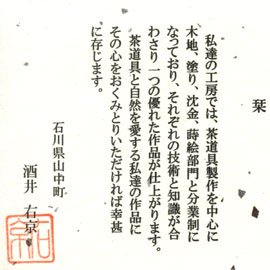 栞
私達の工房では、茶道具製作を中心に
木地、塗り、沈金、蒔絵部門と分業制に
なっており、それぞれの技術と知識が合
わさり一つの優れた作品が仕上がります。
茶道具と自然を愛する私達の作品に
その心をおくみとりいただければ幸甚
に存じます。
石川県山中町
酒井 右京